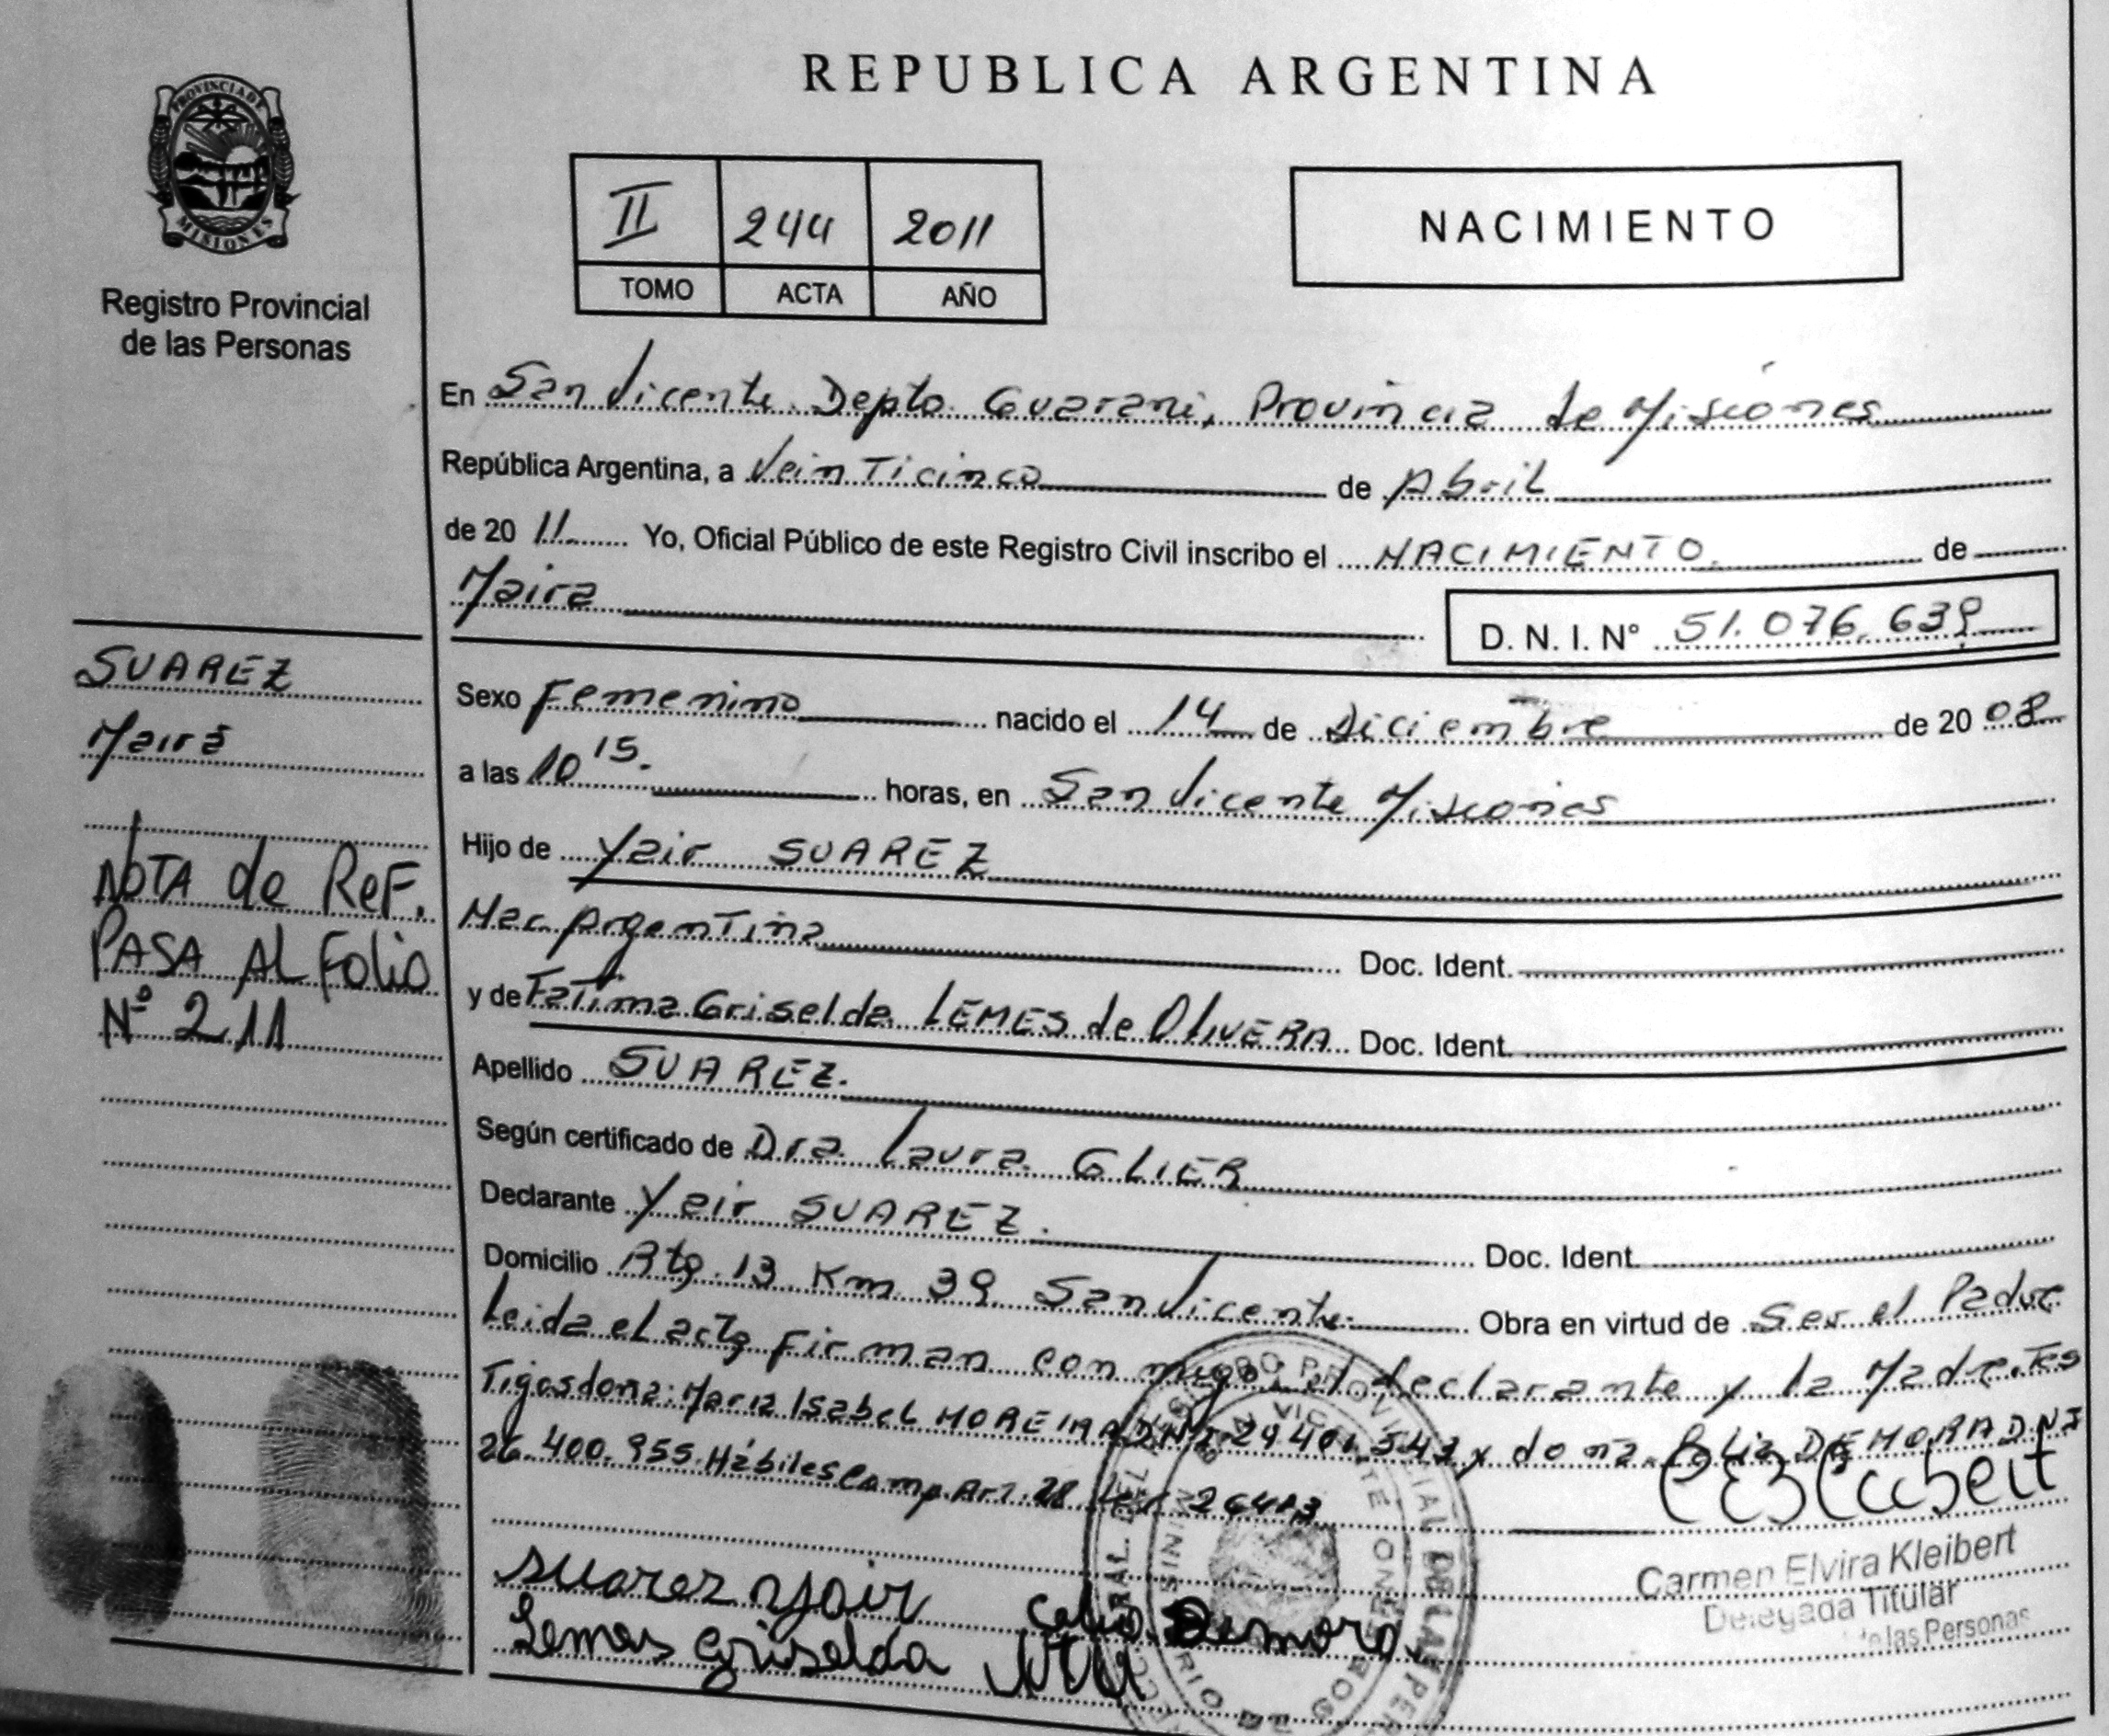 REPUBLICA ARGENTINA
PROVINCIA DE
MISIONES
Registro Provincial
de las Personas
II 244 2011
TOMO ACTA AÑO
NACIMIENTO
En San Vicente Depto Guarani, Provincia de Misiones
República Argentina, a Veinticinco de Abril
de 20 11 Yo, Oficial Público de este Registro Civil inscribo el NACIMIENTO de
Maira
D. N. I. N° 51.076.639
SUAREZ
Maira
NOTA de ReF.
PASA AL Folio
Nº 211
Sexo Femenino nacido el 14 de Diciembre de 20 08
a las 10 15. horas, en San Vicente Misiones
Hijo de Yair SUAREZ
Nac. Argentina Doc. Ident.
y de Fatima Griselda LEMES de OLIVERA Doc. Ident.
Apellido SUAREZ.
Según certificado de Dra. Laura GLIER
Declarante Yair SUAREZ. Doc. Ident.
Domicilio Rta. 13 Km 39 San Vicente Obra en virtud de Ser el Padre
Leida el acta Firman con migo: el declarante y la Madre. Tes
Tigos dona: Maria Isabel MOREIRA DNI y dona DEMORA DNI
26.400.955 Hábiles Comp. Art. 28 Ley 26413
Carmen Elvira Kleibert
Delegada Titular
de las Personas
Suarez Yair
Demora
Lemes Griselda